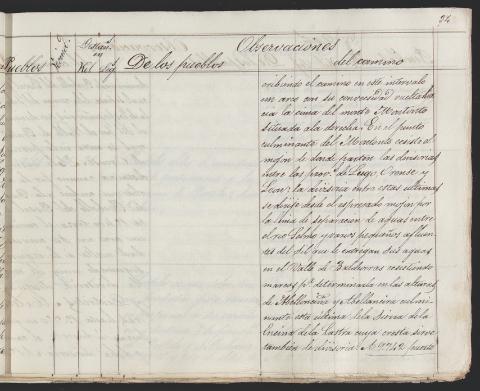 34
Observaciones
Pueblos
De los pueblos
del camino
cribiendo el camino en este intervalo
un arco con su convecsidad vuelta há-
cia la cima del monte Montouto
situada a la derecha. En el punto
culminante del Montouto consiste el
mojon de donde parten las divisorias
entre las provs. de Lugo, Orense y
Leon: la divisoria entre estas ultimas
se dirije desde el espresado mojon por
la linea de separacion de aguas entre
el rio Selmo y varios pequeños afluen-
tes del Sil que le entregan sus aguas
en el Valle de Valdeorras recistiendo
marcos pa. determinarla en las alturas
de y Abellaneira culmi-
nante esta ultima de la Sierra de la
Encina de la Lastra cuya cresta sirve
tambien de divisoria. A 9.742 puente